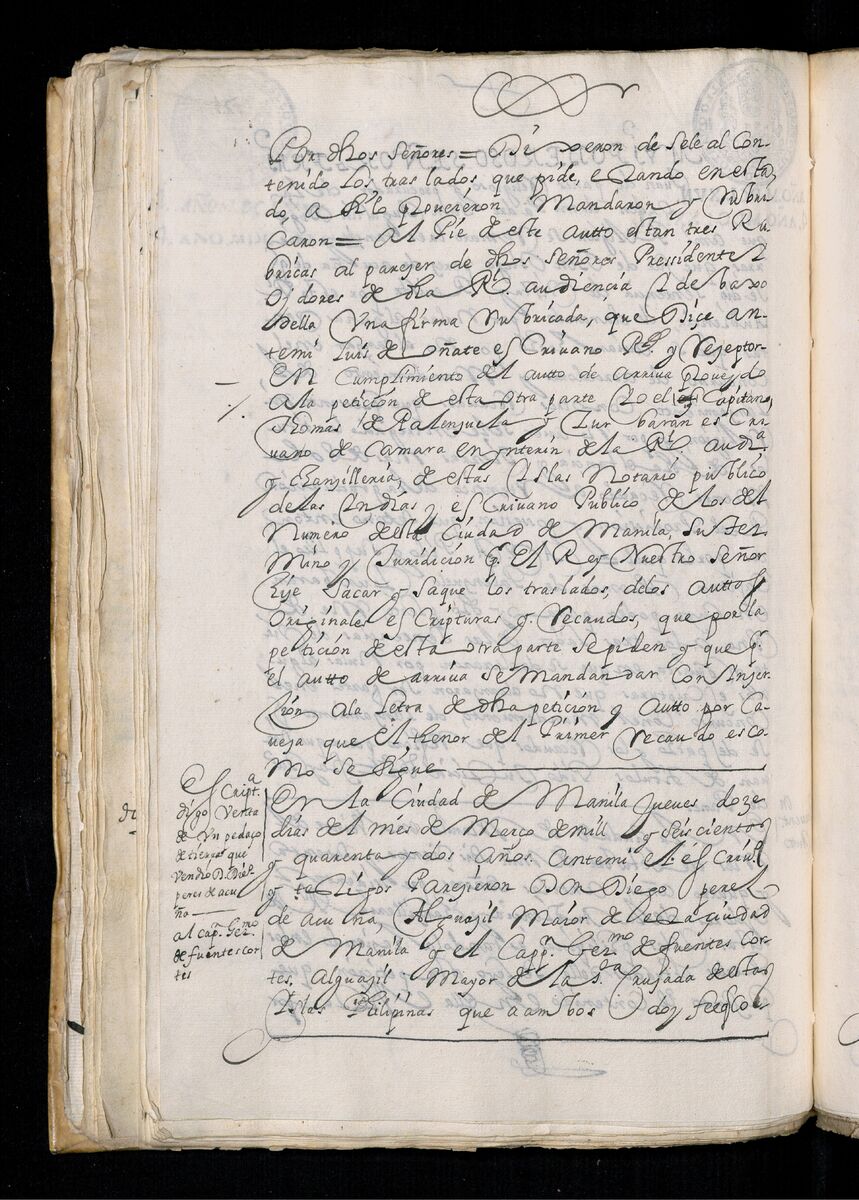 Por dhos Señores = Dixeron desele al Con-
tenido los traslados que pide, estando en esta
do, a Rl lo proueieron Mandaron y Rubri
Caron = Al Pie deste autto estan tres Ru
bricas al pareçer de dhos Señores Pressidente e
Oydores de dha Rl. audiençia e debaxo
della Vna firma Rubricada, que Diçe an-
temi Luis de oñate esCriuano Rl. y Reçeptor-
En Cumplimiento del autto de Arriua proueydo
Ala petiçion de esta otra parte Yo el Capitan
Thomas de Palençuela y Çurbaran esCri
uano de Camara en ynterin de la Rl. audia
y chanzilleria, de estas Yslas Notario publico
delas Yndias y esCriuano Publico, de los del
Numero desta Ciudad de Manila, Su ter
Mino y Juridicion Pr. El Rey Nuestro Señor
hiçe Sacar y Saque los traslados, delos auttos
Originales esCripturas y Recaudos, que por la
petiçion de esta otra parte se piden y que pr.
el autto de arriua se mandan dar Con Ynser
çion ala letra de dha petiçion y Autto por Ca-
ueça que el thenor del Primer Recaudo es co-
mo se sigue
EsCripta
digo Venta
de Vn pedaço
de tierras que
vendio D. Diego
peres de acu
ña
al Capn. Germo
de fuentes cor
tes
En la Ciudad de Manila Jueues doze
dias del mes de Março de mill y seiscientos
y quarenta y dos años. Antemi el esCriuo
y testigos Pareçieron Don Diego perez
de acuña, Alguaçil Maior de esta çiudad
de Manila y el Cappn. Germo de fuentes Cor-
tes, Alguaçil Mayor de la sta Cruzada destas
Yslas Philipinas que a ambos doy fee q Co-